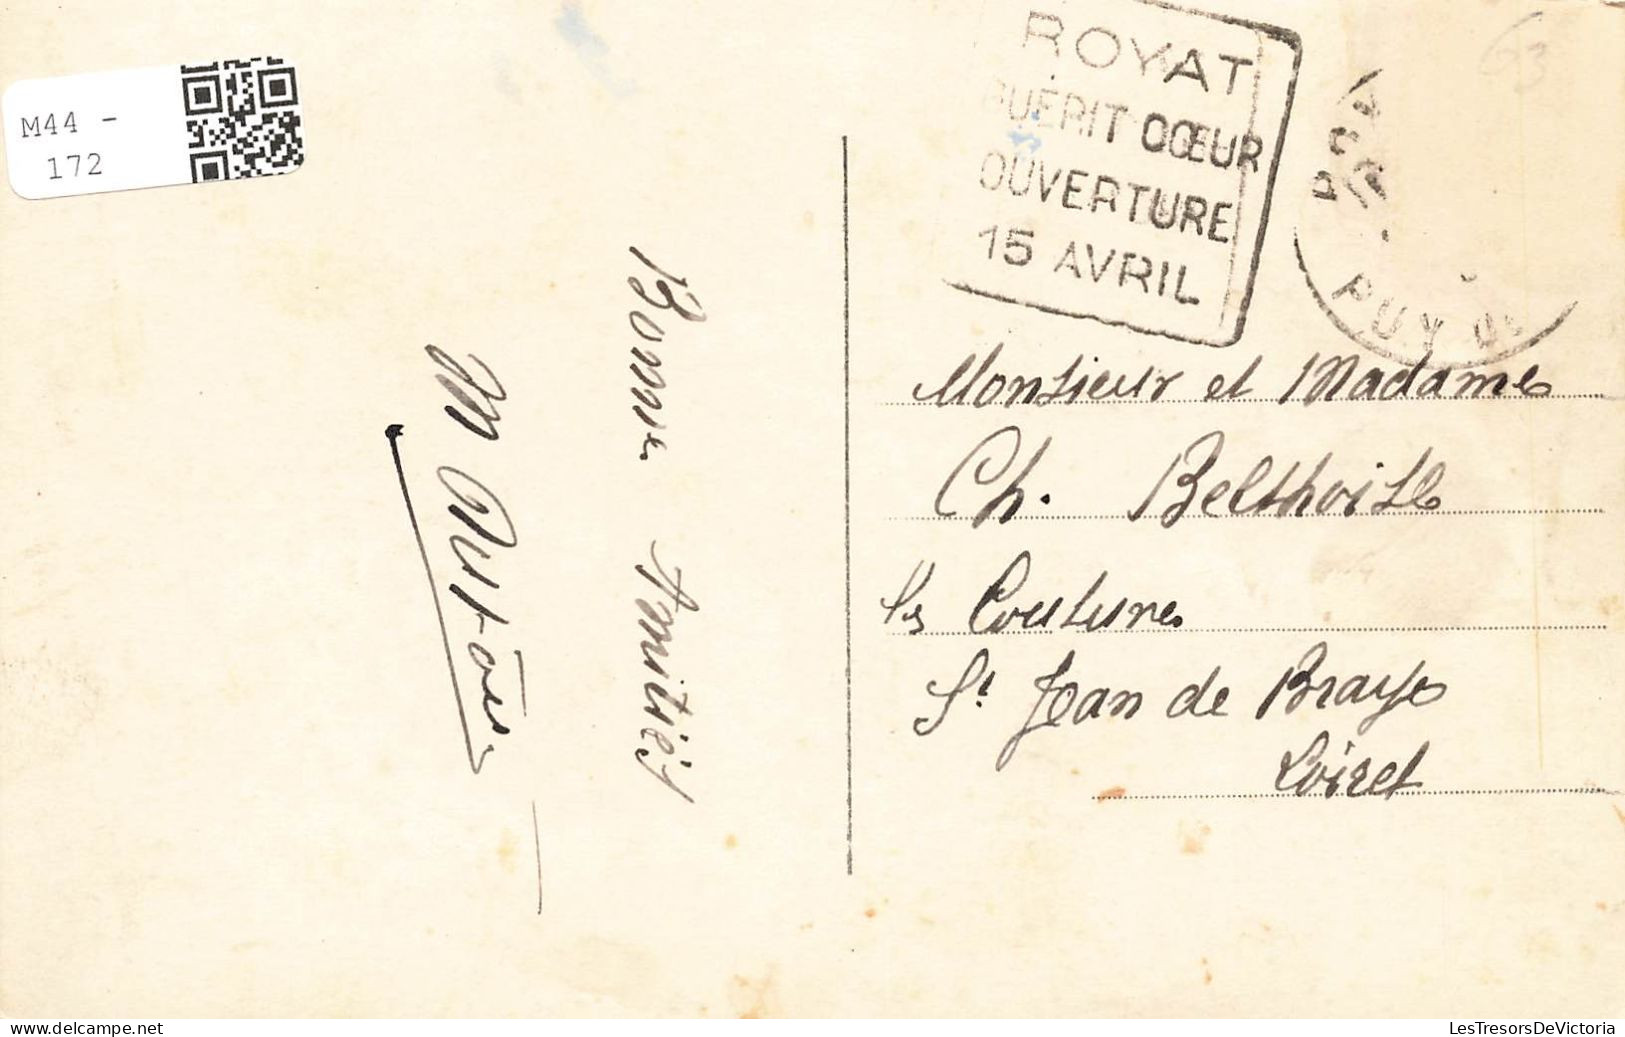 M44 -
172
ROYAT
GUÉRIT CŒUR
OUVERTURE
15 AVRIL
ROYAT
PUY DE
63
Bonnes Amitiés
M
Monsieur et Madame
Ch. Belthoise
les Coutures
St Jean de Braye
Loiret
LesTresorsDeVictoria
delcampe.net